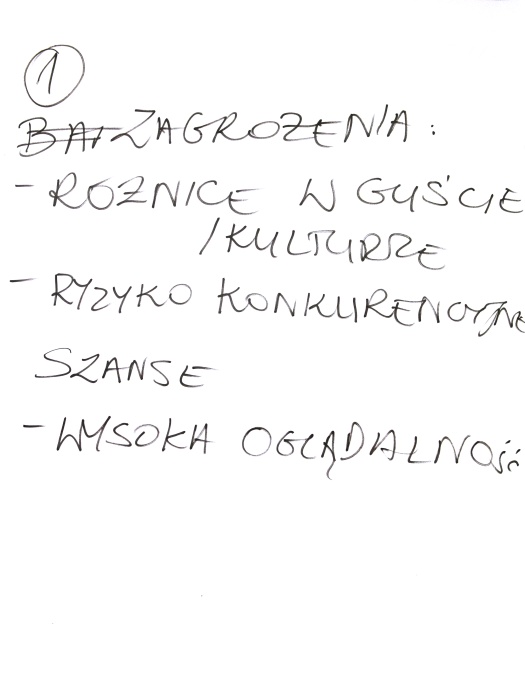 1
ZAGROŻENIA:
- RÓŻNICE W GUŚCIE
/KULTURZE
- RYZYKO KONKURENCYJNE
SZANSE
- WYSOKA OGLĄDALNOŚĆ